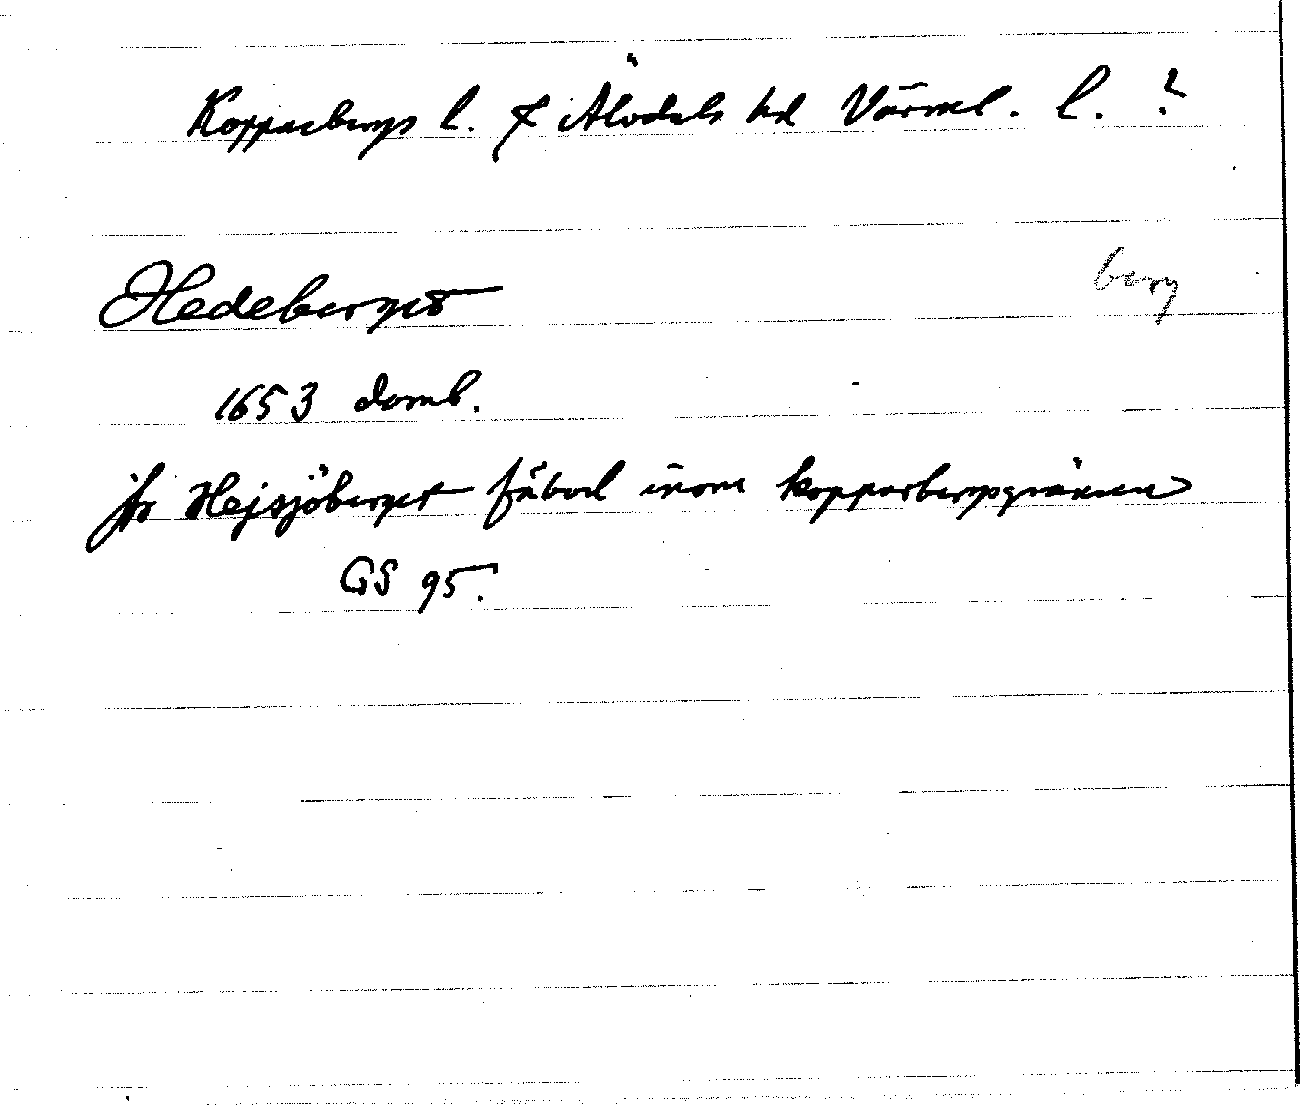 Kopparbergs l. f Älvdals hd Värml. l. ?
Hedeberget berg
1653 domb.
jfr Hejsjöberget fäbod inom kopparbergsgränsen
GS 95.